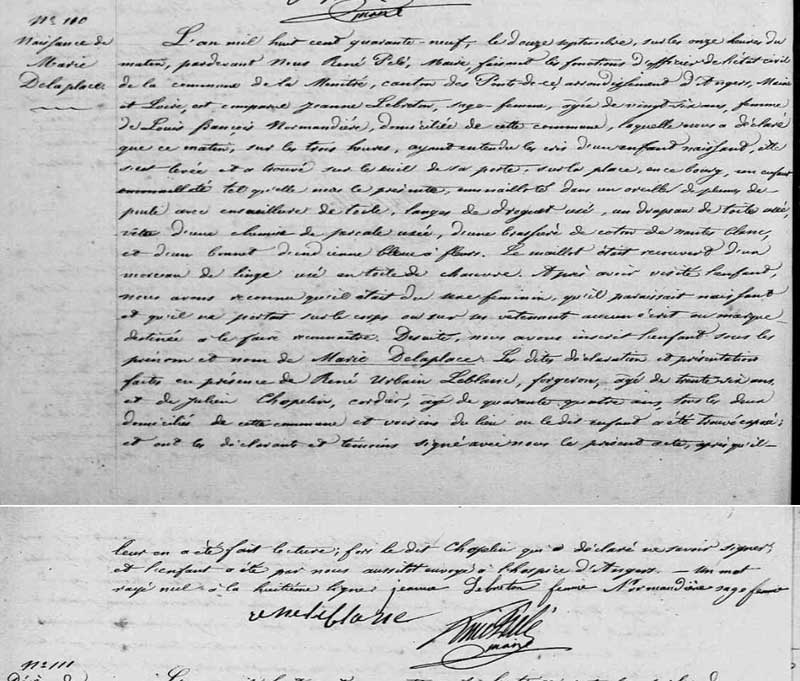 maire
N° 110
Naissance de
Marie
Delaplace.
L'an mil huit cent quarante-neuf, le douze septembre, sur les onze heures du
matin, pardevant Nous René Pelé, Maire, faisant les fonctions d'officier de l'état civil
de la commune de la Menitré, canton des Ponts-de-cé, arrondissement d'Angers, Maine
et Loire, est comparue Jeanne Lebreton, sage-femme, agée de vingt-six ans, femme
de Louis François Normandière, domiciliée de cette commune, laquelle nous a déclaré
que ce matin, sur les trois heures, ayant entendu les cris d'un enfant naissant, elle
s'est levée et a trouvé sur le seuil de sa porte, sur la place, en ce bourg, un enfant
emmailloté tel qu'elle nous le présente, emmailloté dans un oreiller de plumes de
poule avec ensouillure de toile, langes de droguet usé, un drapeau de toile usée,
vêtu d'une chemise de percale usée, d'une brassière de coton de nantes blanc,
et d'un bonnet d'indienne bleue à fleurs. Le maillot était recouvert d'un
morceau de linge usé en toile de chanvre. Après avoir visité l'enfant,
nous avons reconnu qu'il était du sexe feminin, qu'il paraissait naissant
et qu'il ne portait sur le corps ou sur ses vêtements aucun écrit ou marque
destinée à le faire reconnaître. De suite, nous avons inscrit l'enfant sous les
prénom et nom de Marie Delaplace. Les dites déclaration et présentation
faites en présence de René Urbain Leblanc, forgeron, agé de trente six ans,
et de Julien Chapelin, cordier, agé de quarante quatre ans, tous les deux
domiciliés de cette commune et voisins du lieu où le dit enfant a été trouvé exposé;
et ont les déclarants et témoins signé avec nous le présent acte, après qu'il
leur en a été fait lecture; fors le dit Chapelin qui a déclaré ne savoir signer;
et l'enfant a été par nous aussitôt envoyé à l'hospice d'Angers. — Un mot
rayé nul à la huitième ligne. jeanne Lebreton femme Normandière sage femme
rene leblanc
René Pelé
maire
N° 111